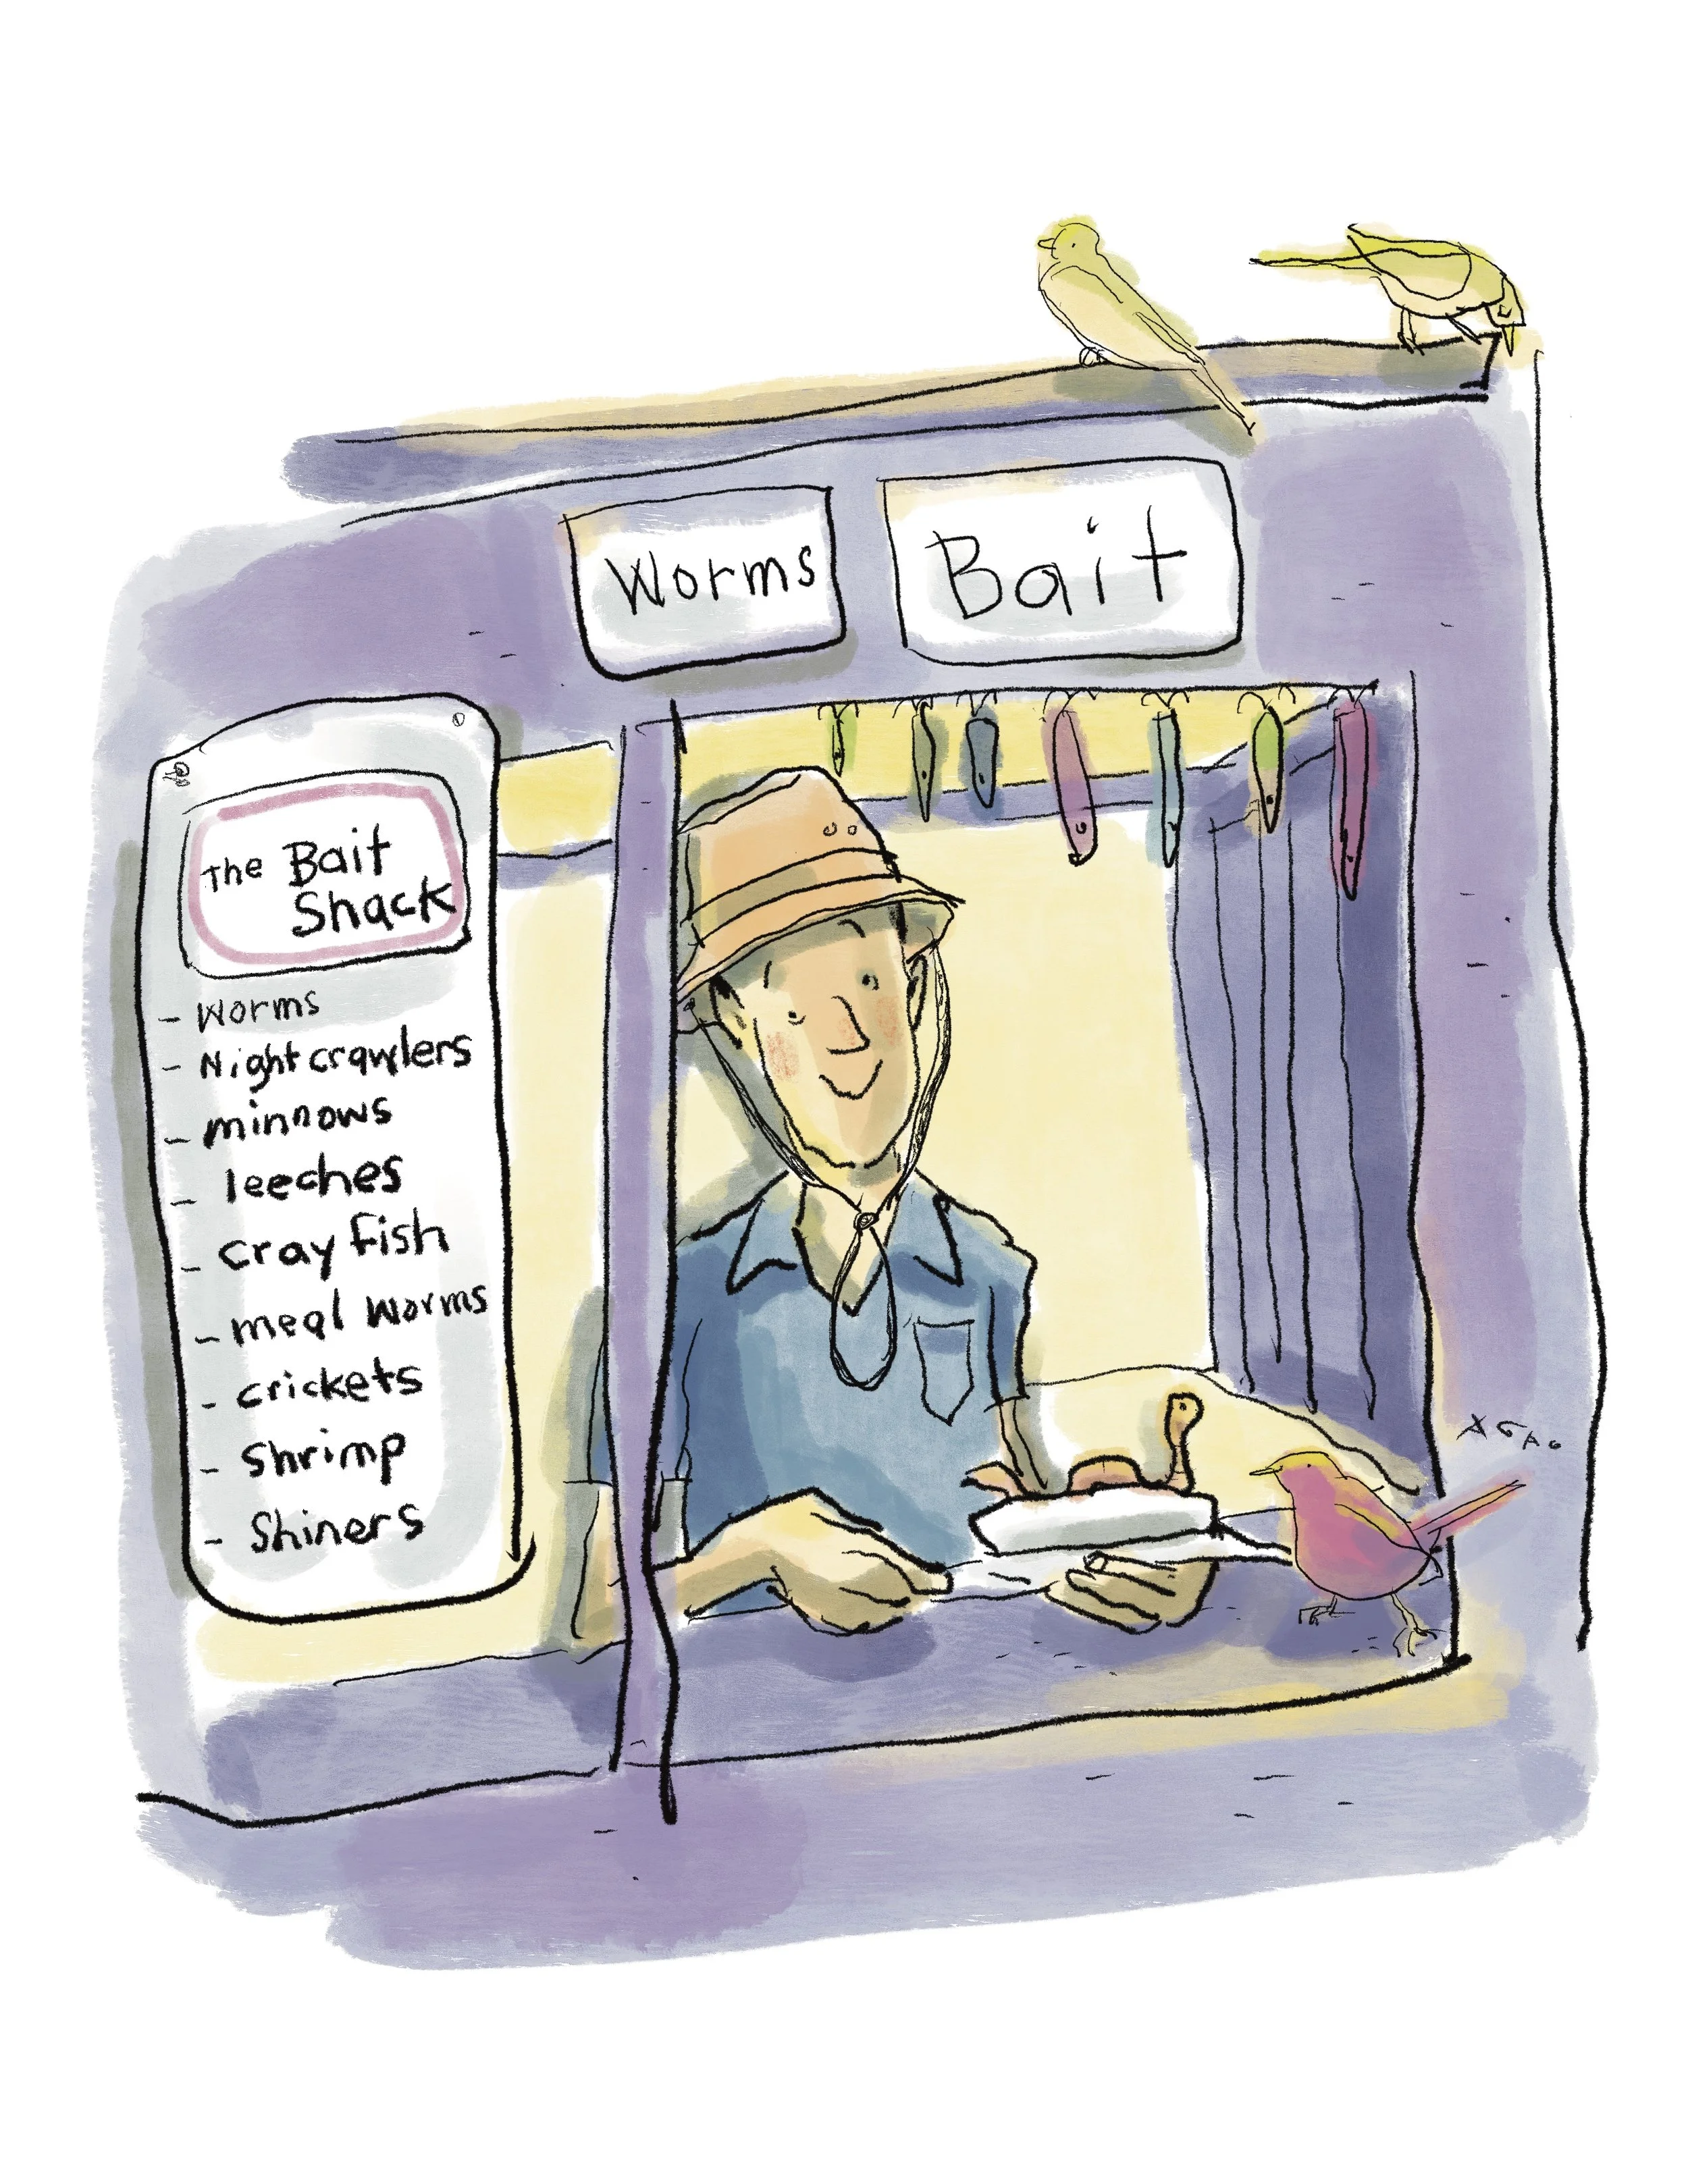 Worms
Bait
The Bait
Shack
- Worms
- Nightcrawlers
- minnows
- leeches
- cray fish
- meal worms
- crickets
- Shrimp
- Shiners